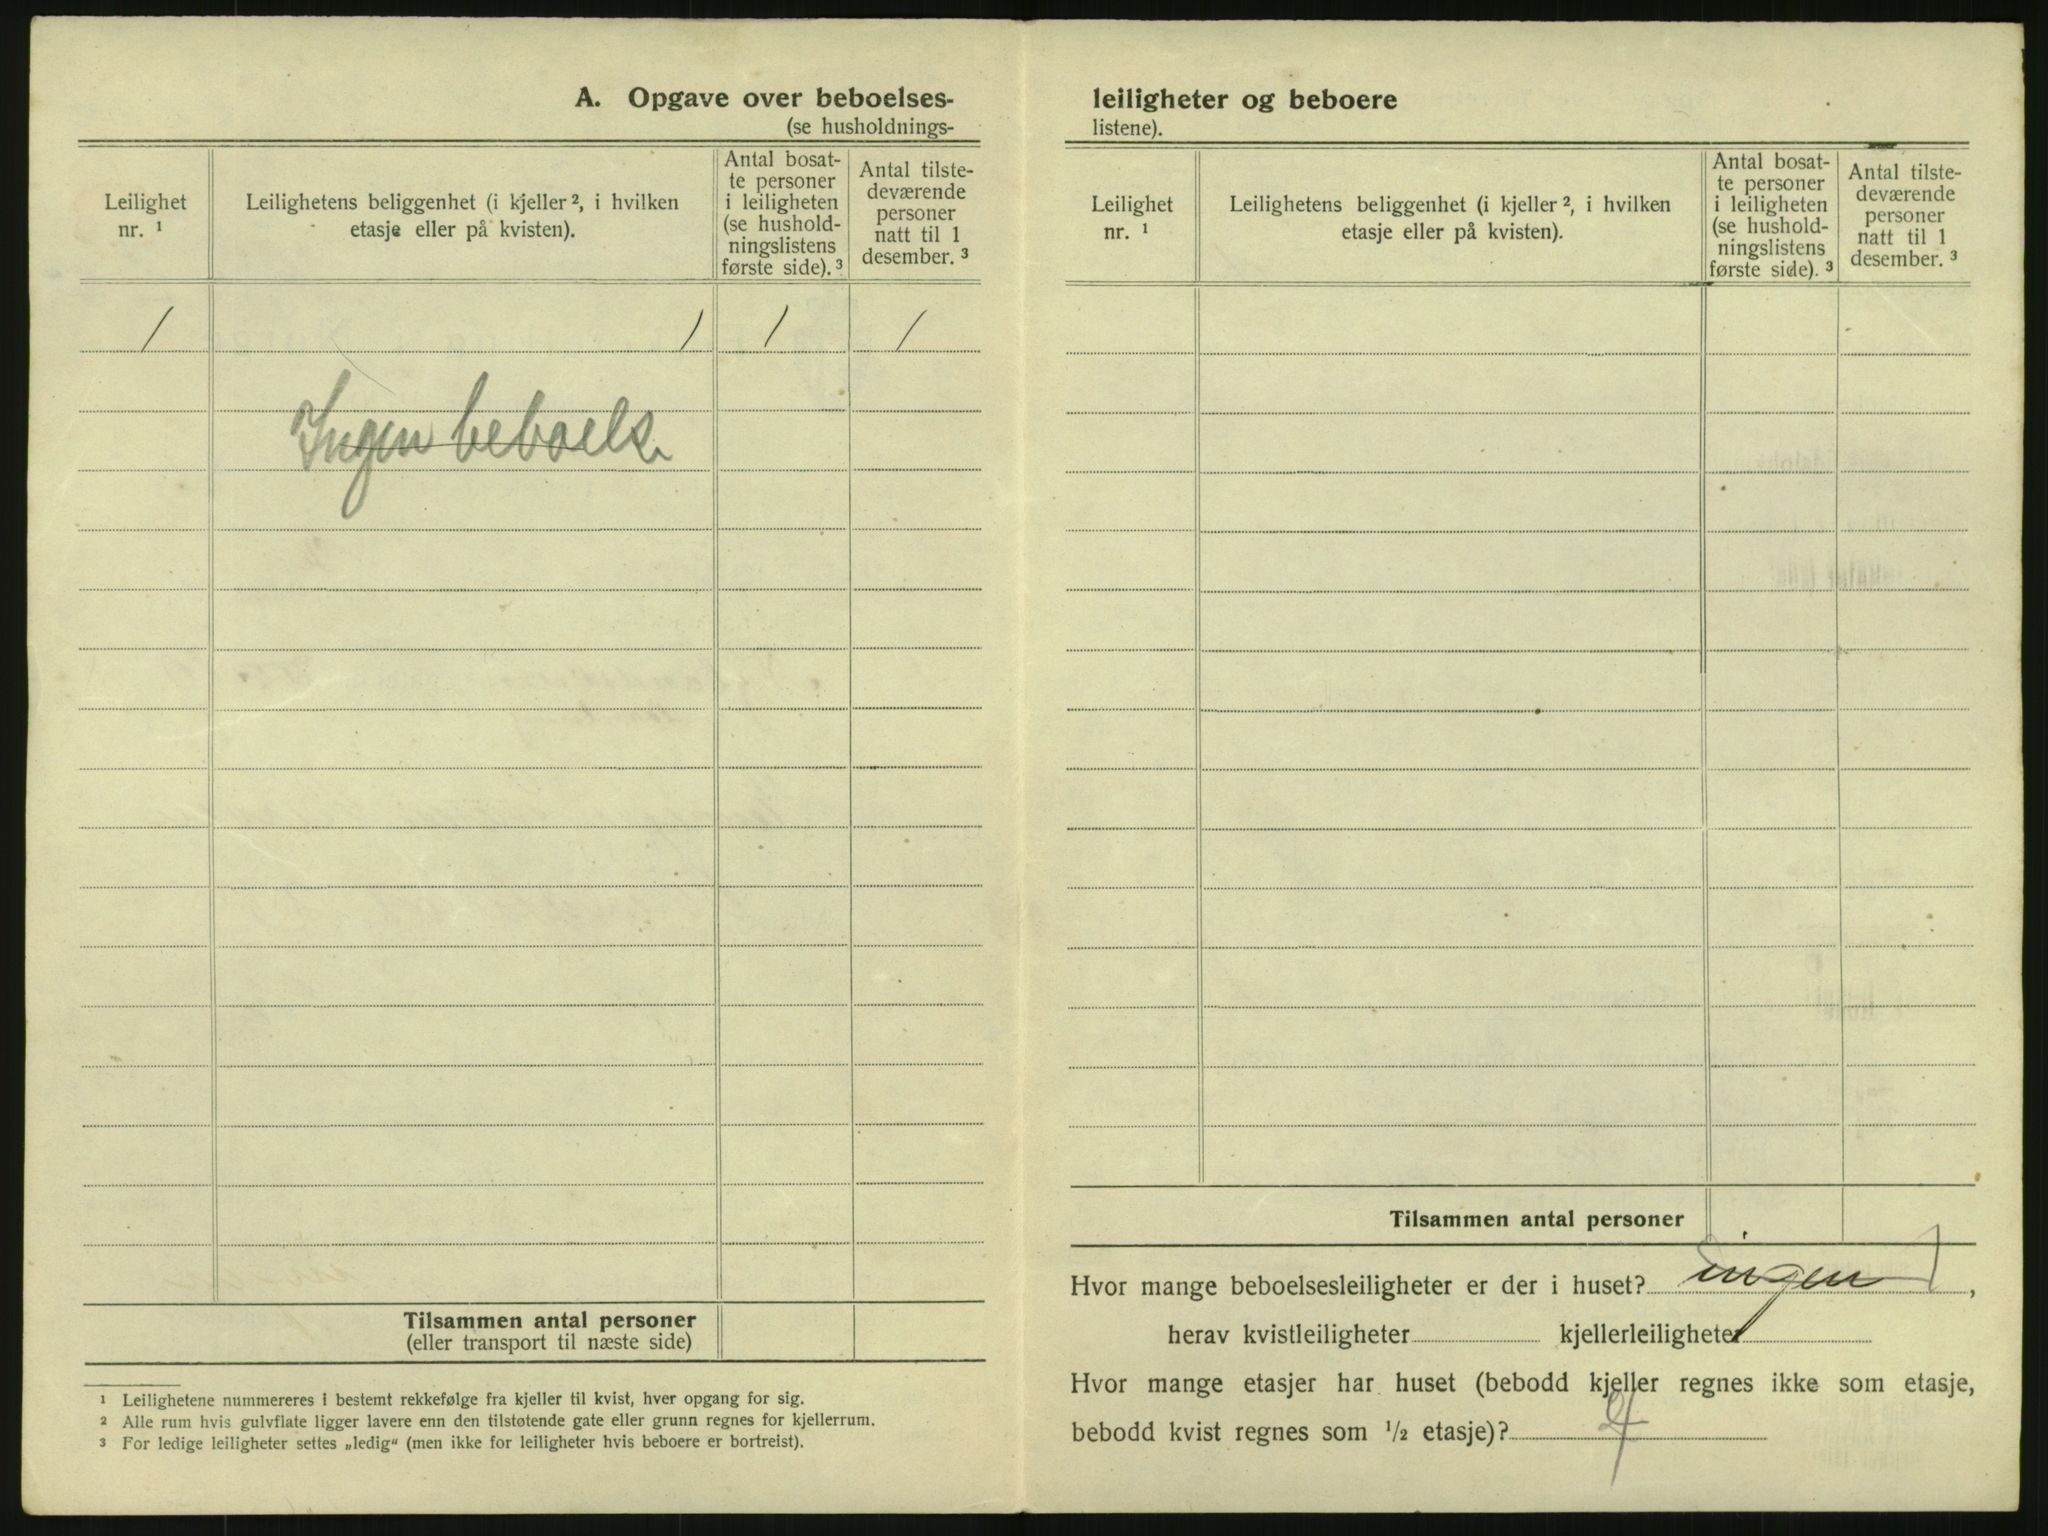 A. Opgave over beboelses-
(se husholdnings-
Leilighet
nr. ¹
Leilighetens beliggenhet (i kjeller ², i hvilken
etasje eller på kvisten).
Antal bosat-
te personer
i leiligheten
(se hushold-
ningslistens
første side). ³
Antal tilste-
deværende
personer
natt til 1
desember. ³
1 1 1 1
Ingen beboelse
Tilsammen antal personer
(eller transport til næste side)
¹ Leilighetene nummereres i bestemt rekkefølge fra kjeller til kvist, hver opgang for sig.
² Alle rum hvis gulvflate ligger lavere enn den tilstøtende gate eller grunn regnes for kjellerrum.
³ For ledige leiligheter settes „ledig“ (men ikke for leiligheter hvis beboere er bortreist).
leiligheter og beboere
listene).
Leilighet
nr. ¹
Leilighetens beliggenhet (i kjeller ², i hvilken
etasje eller på kvisten).
Antal bosat-
te personer
i leiligheten
(se hushold-
ningslistens
første side). ³
Antal tilste-
deværende
personer
natt til 1
desember. ³
Tilsammen antal personer
Hvor mange beboelsesleiligheter er der i huset? ingen 1,
herav kvistleiligheter kjellerleiligheter
Hvor mange etasjer har huset (bebodd kjeller regnes ikke som etasje,
bebodd kvist regnes som ½ etasje)?